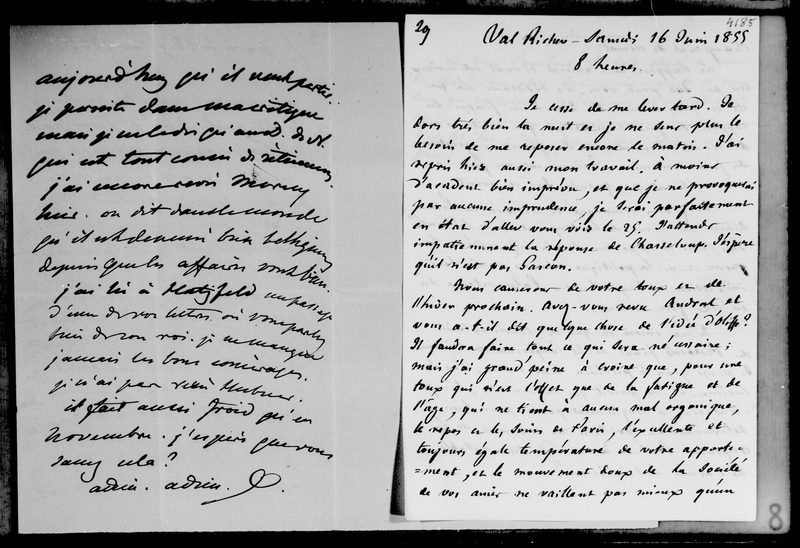 aujourd'huy qu'il veut partir.
je persiste dans ma critique
mais je
qui est tout couvin de
j'ai encore revu Morny
hier. on dit dans le monde
qu'il est devenu bien belliqueux
depuis que les affaires vont bien.
j'ai lu à Hatzfeld un passage
d'une de vos lettres où vous parlez
bien de son roi. je ne manque
jamais les bons commérages.
je n'ai pas revu Hubner.
il fait aussi froid qu'en
novembre. j'espère que vous
savez cela?
adieu. adieu.
29
4185
Val Richer - Samedi 16 Juin 1855
8 heures.
Je cesse de me lever tard. Je
dors très bien la nuit et je ne sens plus le
besoin de me reposer encore le matin. J'ai
repris hier aussi mon travail. à moins
d'accident bien imprévu, et que je ne provoquerai
par aucune imprudence, je serai parfaitement
en état d'aller vous voir le 25. J'attends
impatiemment la réponse de Chasseloup. J'espère
qu'il n'est pas garçon.
Nous causerons de votre toux et de
l'hiver prochain. Avez-vous revu Andral et
vous a-t-il dit quelque chose de l'idée d'Oliffe?
Il faudra faire tout ce qui sera nécessaire;
mais j'ai grand'peine à croire que, pour une
toux qui n'est l'effet que de la fatigue et de
l'âge, qui ne tient à aucun mal organique,
le repos et les soins de Paris, l'excellente et
toujours égale température de votre apparte-
=ment, et le mouvement doux de la Société
de vos amis ne vaillent pas mieux qu'un
8